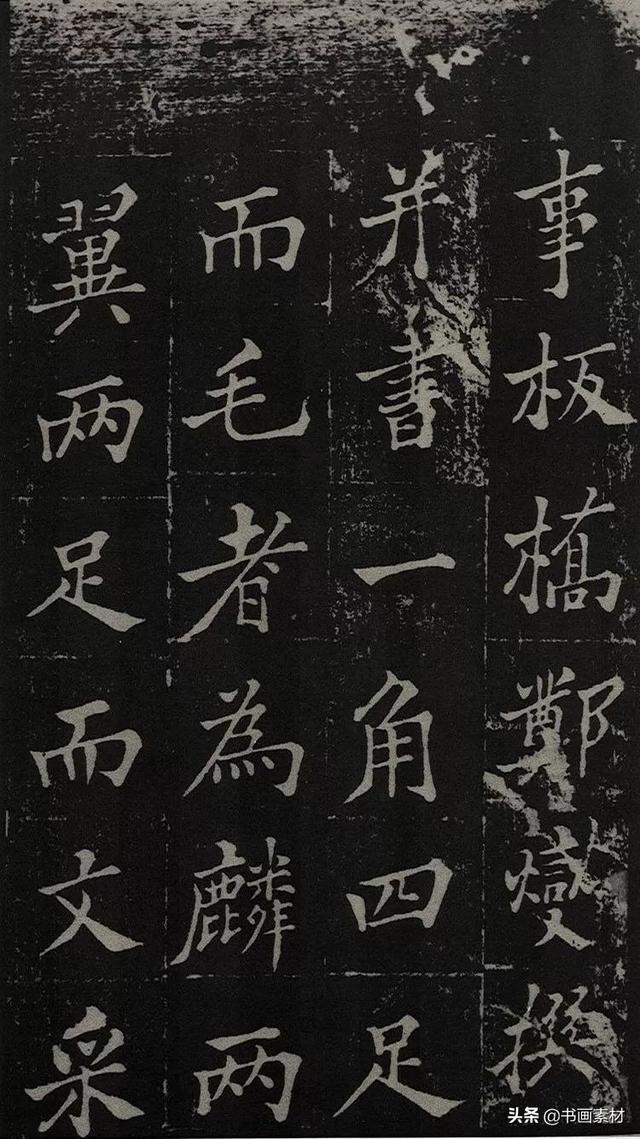 事板橋鄭燮撰
并書一角四足
而毛者為麟两
翼两足而文采
头条 @书画素材